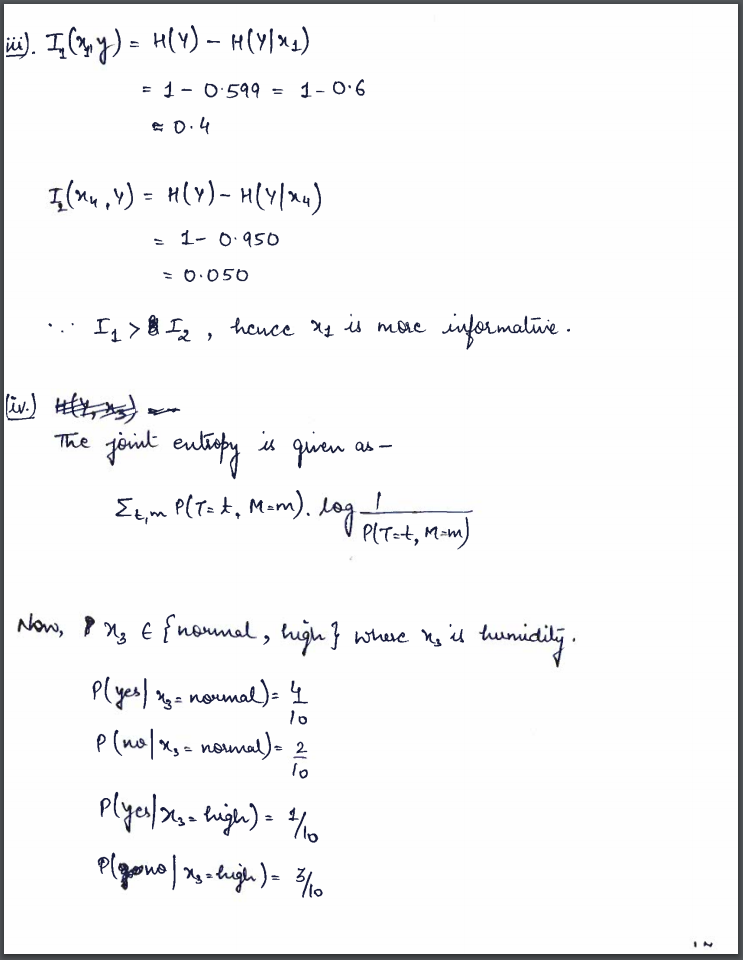 iii). I₁(x₁, y) = H(Y) - H(Y|x₁)
= 1 - 0.599 = 1 - 0.6
≈ 0.4
I₂(x₄, Y) = H(Y) - H(Y|x₄)
= 1 - 0.950
= 0.050
∵ I₁ > I₂, hence x₁ is more informative.
(iv.) H(Y, x₃) -
The joint entropy is given as -
Σt,m P(T=t, M=m). log 1/P(T=t, M=m)
Now, x₃ ∈ {normal, high} where x₃ is humidity.
P(yes| x₃ = normal) = 4/10
P(no| x₃ = normal) = 2/10
P(yes| x₃ = high) = 1/10
P(no | x₃ = high) = 3/10